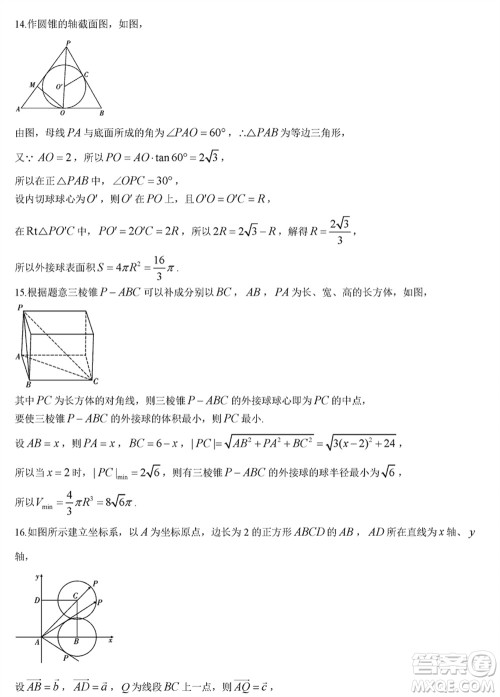 14.作圆锥的轴截面图，如图，
P
M
C
O′
A
O
B
由图，母线 PA 与底面所成的角为∠PAO = 60°，∴△PAB 为等边三角形，
又∵ AO = 2，所以 PO = AO·tan60° = 2√3，
所以在正△PAB 中，∠OPC = 30°，
设内切球球心为 O′，则 O′ 在 PO 上，且 O′O = O′C = R，
在 Rt△PO′C 中，PO′ = 2O′C = 2R，所以 2R = 2√3 − R，解得 R = 2√3/3，
所以外接球表面积 S = 4πR² = 16/3 π.
15.根据题意三棱锥 P − ABC 可以补成分别以 BC，AB，PA 为长、宽、高的长方体，如图，
P
A
B
C
其中 PC 为长方体的对角线，则三棱锥 P − ABC 的外接球球心即为 PC 的中点，
要使三棱锥 P − ABC 的外接球的体积最小，则 PC 最小.
设 AB = x，则 PA = x，BC = 6 − x，|PC| = √(AB² + PA² + BC²) = √(3(x − 2)² + 24)，
所以当 x = 2 时，|PC|min = 2√6，则有三棱锥 P − ABC 的外接球的球半径最小为 √6，
所以 Vmin = 4/3 πR³ = 8√6π.
16.如图所示建立坐标系，以 A 为坐标原点，边长为 2 的正方形 ABCD 的 AB，AD 所在直线为 x 轴、y
轴，
y
P
D
C
P
A
B
x
P
设 AB→ = b→，AD→ = a→，Q 为线段 BC 上一点，则 AQ→ = c→，